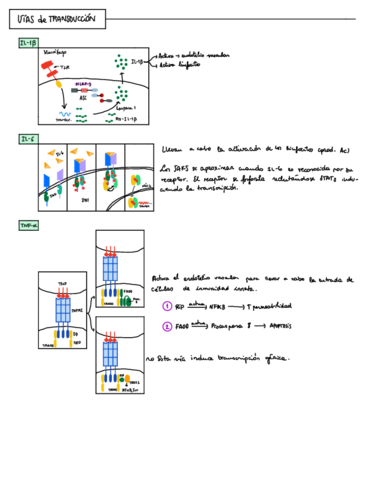 VÍAS de TRANSDUCCIÓN
IL-1β
Macrófago
TLR
IL-1β
→ Activa el endotelio vascular
→ Activa linfocitos
NLRP-3
ASC
Caspasa 1
Pro-IL-1β
IL-6
IL-6
JAK
DNI
Llevan a cabo la activación de los linfocitos (prod. Ac)
Los JAKS se aproximan cuando IL-6 es reconocida por su
receptor. El receptor se fosforila reclutándose STATs indu-
ciendo la transcripción.
TNF-α
TNF
TNFR1
TRADD
FADD
Activa el endotelio vascular para llevar a cabo la entrada de
células de inmunidad innata.
① RIP activa → NFKB → ↑ permeabilidad
② FADD activa → Procaspasa 8 → APOPTOSIS
Esta vía induce transcripción génica.